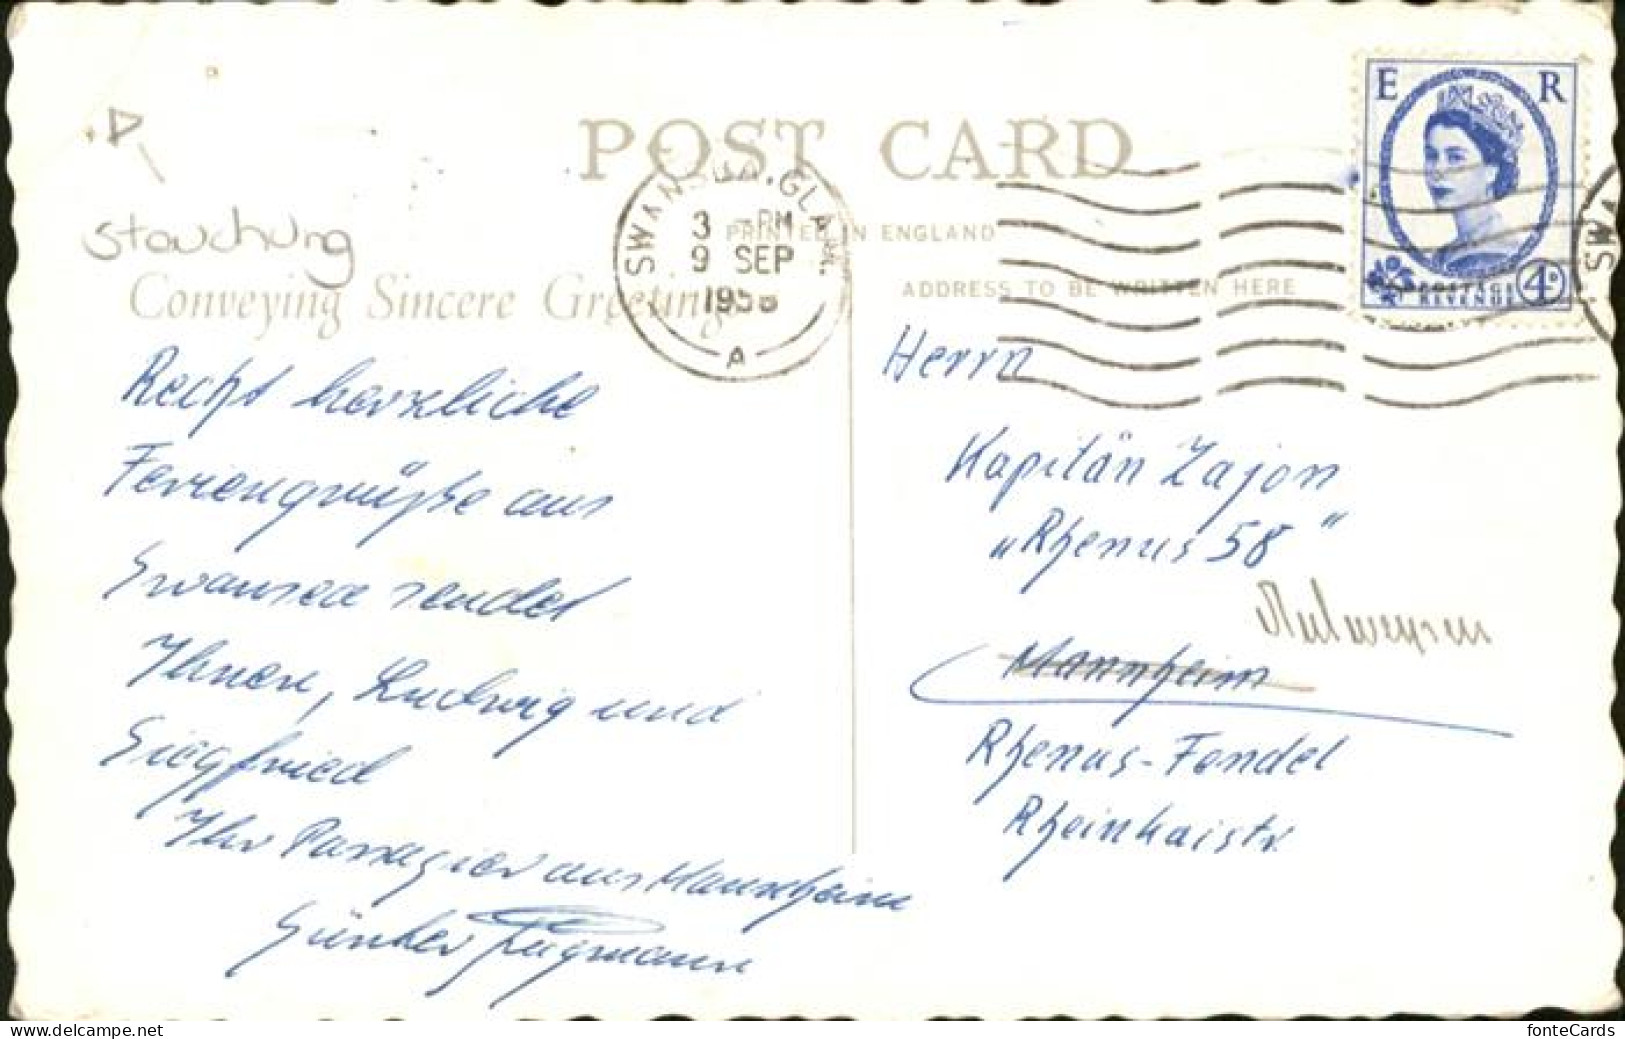 POST CARD
SWANSEA. GLAM.
3 - PM
9 SEP
1958
A
PRINTED IN ENGLAND
ADDRESS TO BE WRITTEN HERE
E R
POSTAGE
REVENUE
4D
SWA
stauchung
Conveying Sincere Greetings
Recht herzliche
Feriengrüße aus
Swansea sendet
Ihnen, Ludwig und
Siegfried
Ihr Passagier aus Mannheim
Günter
Herrn
Kapitän Zajon
„Rhenus 58"
Mannheim
Rhenus-Fendel
Rheinkaistr.
www.delcampe.net
fonteCards